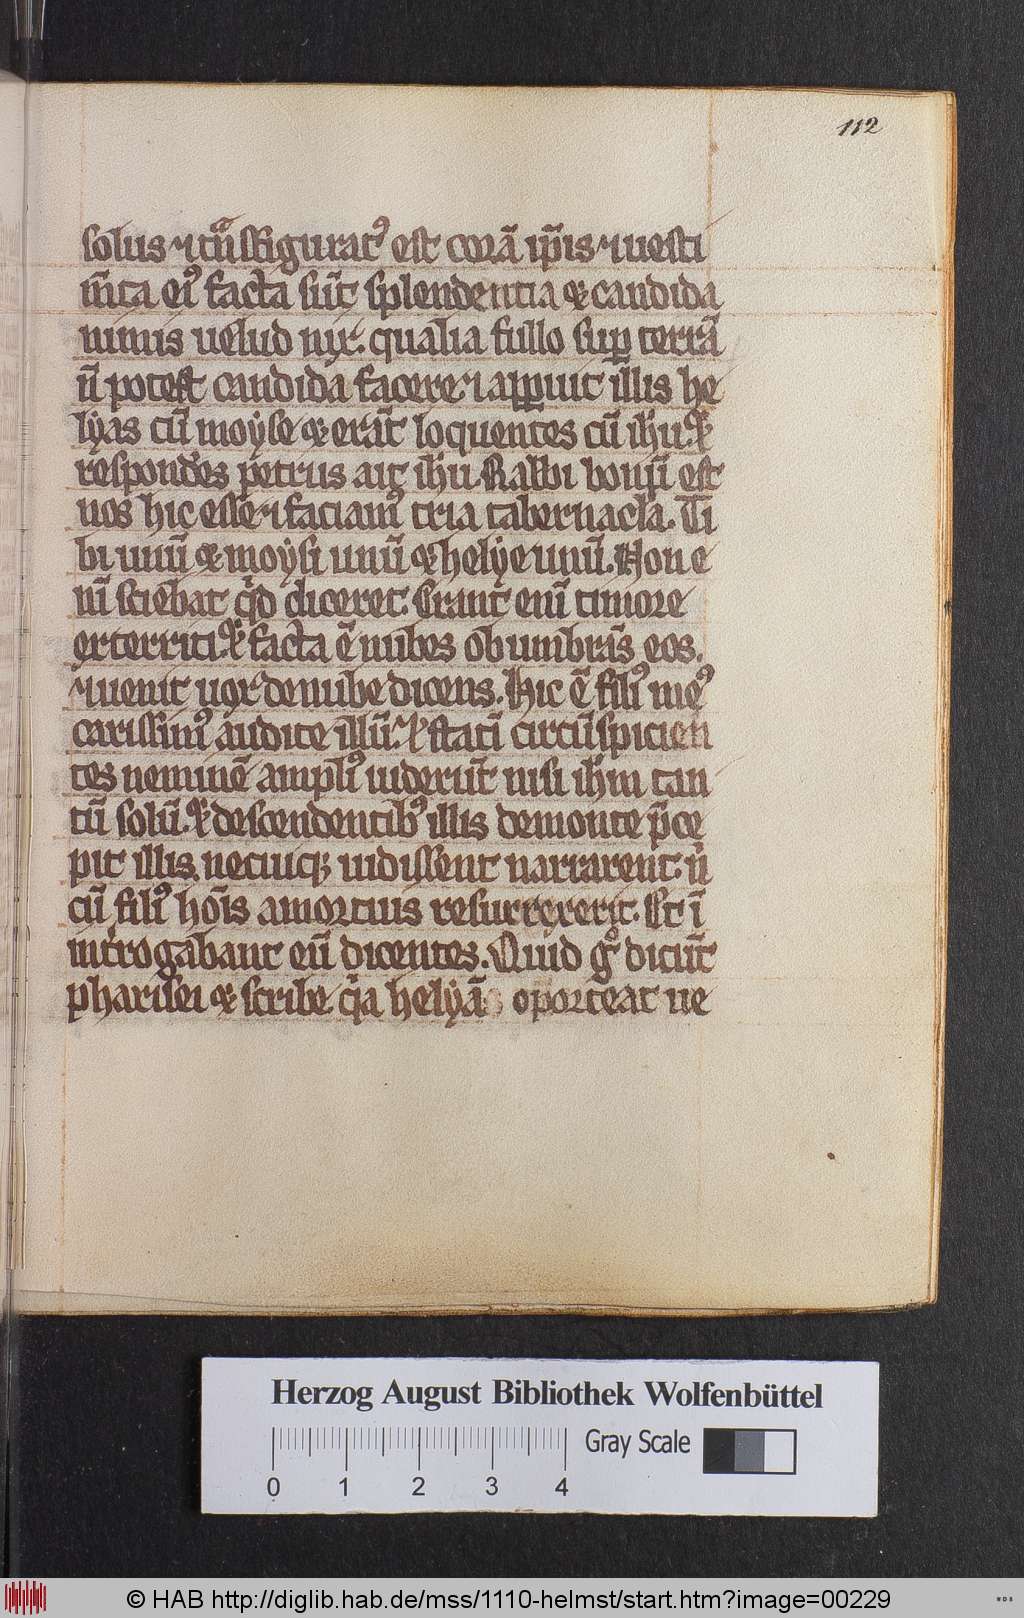 112
solus ⁊ tͣnsfigurat᷒ est corā ip̄is ⁊ uesti
m̄ta ei᷒ facta sūt splendentia & candida
nimis uelud nix. qualia fullo suꝑ terrā
n̄ potest candida facere ⁊ apꝑuit illis he
lyas cū moyse & erāt loquentes cū ihu. &
respondēs petrus ait ihu. Rabbi bonū est
nos hic esse ⁊ faciam᷒ tria tabernacla. Ti
bi unū & moysi unū & helye unū. Non e
nī sciebat qͥd diceret. Erant enī timore
exterriti. & facta ē nubes obumbrās eos.
⁊ uenit uox de nube dicens. Hic ē fili᷒ me᷒
carissim᷒ audite illū. & statī circūspicien
tes neminē ampli᷒ uiderūt nisi ihm tan
tū solū. & descendentib᷒ illis de monte p̄ce
pit illis ne cuiqꝫ uidissent narrarent. nͥ
cū fili᷒ hōis a mortuis resurrexerit. Et ī
introgabant eū dicentes. Quid gͦ dicūt
pharisei & scribe qͥa helyā oporteat ue
Herzog August Bibliothek Wolfenbüttel
Gray Scale
0 1 2 3 4
© HAB http://diglib.hab.de/mss/1110-helmst/start.htm?image=00229